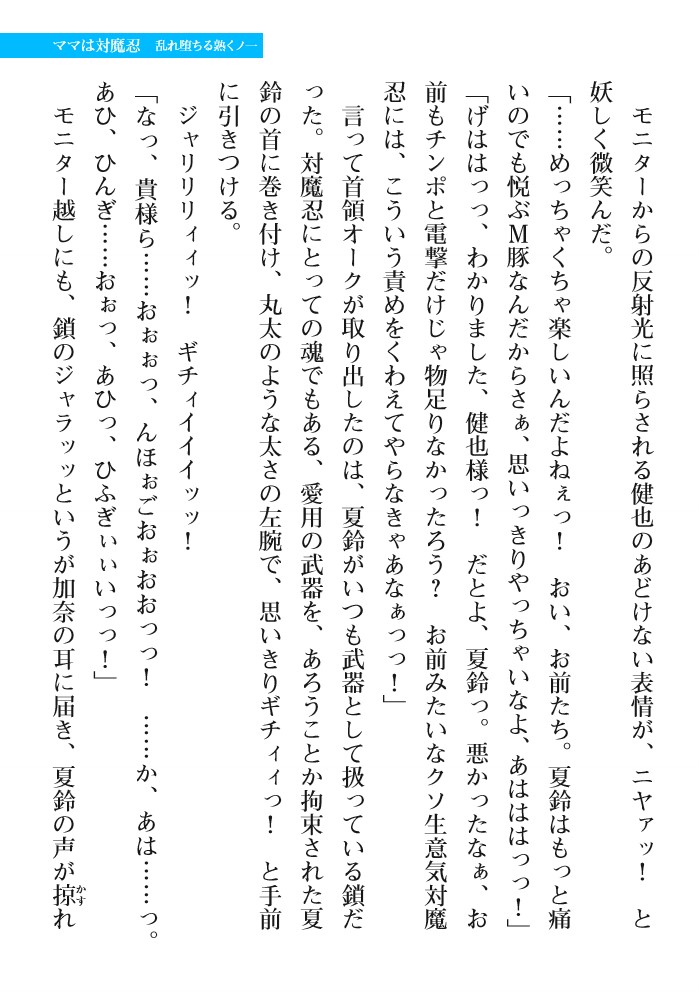 ママは対魔忍　乱れ堕ちる熟くノ一
　モニターからの反射光に照らされる健也のあどけない表情が、ニヤァッ！　と
妖しく微笑んだ。
「……めっちゃくちゃ楽しいんだよねぇっ！　おい、お前たち。夏鈴はもっと痛
いのでも悦ぶＭ豚なんだからさぁ、思いっきりやっちゃいなよ、あはははっっ！」
「げははっっ、わかりました、健也様っ！　だとよ、夏鈴っ。悪かったなぁ、お
前もチンポと電撃だけじゃ物足りなかったろう？　お前みたいなクソ生意気対魔
忍には、こういう責めをくわえてやらなきゃあなぁっっ！」
　言って首領オークが取り出したのは、夏鈴がいつも武器として扱っている鎖だ
った。対魔忍にとっての魂でもある、愛用の武器を、あろうことか拘束された夏
鈴の首に巻き付け、丸太のような太さの左腕で、思いきりギチィィっ！　と手前
に引きつける。
　ジャリリリィィッ！　ギチィイイイッッ！
「なっ、貴様ら……おぉぉっ、んほぉごおぉおおっっ！　……か、あは……っ。
あひ、ひんぎ……おぉっ、あひっ、ひふぎぃぃいっっ！」
　モニター越しにも、鎖のジャラッッというが加奈の耳に届き、夏鈴の声が掠かすれ